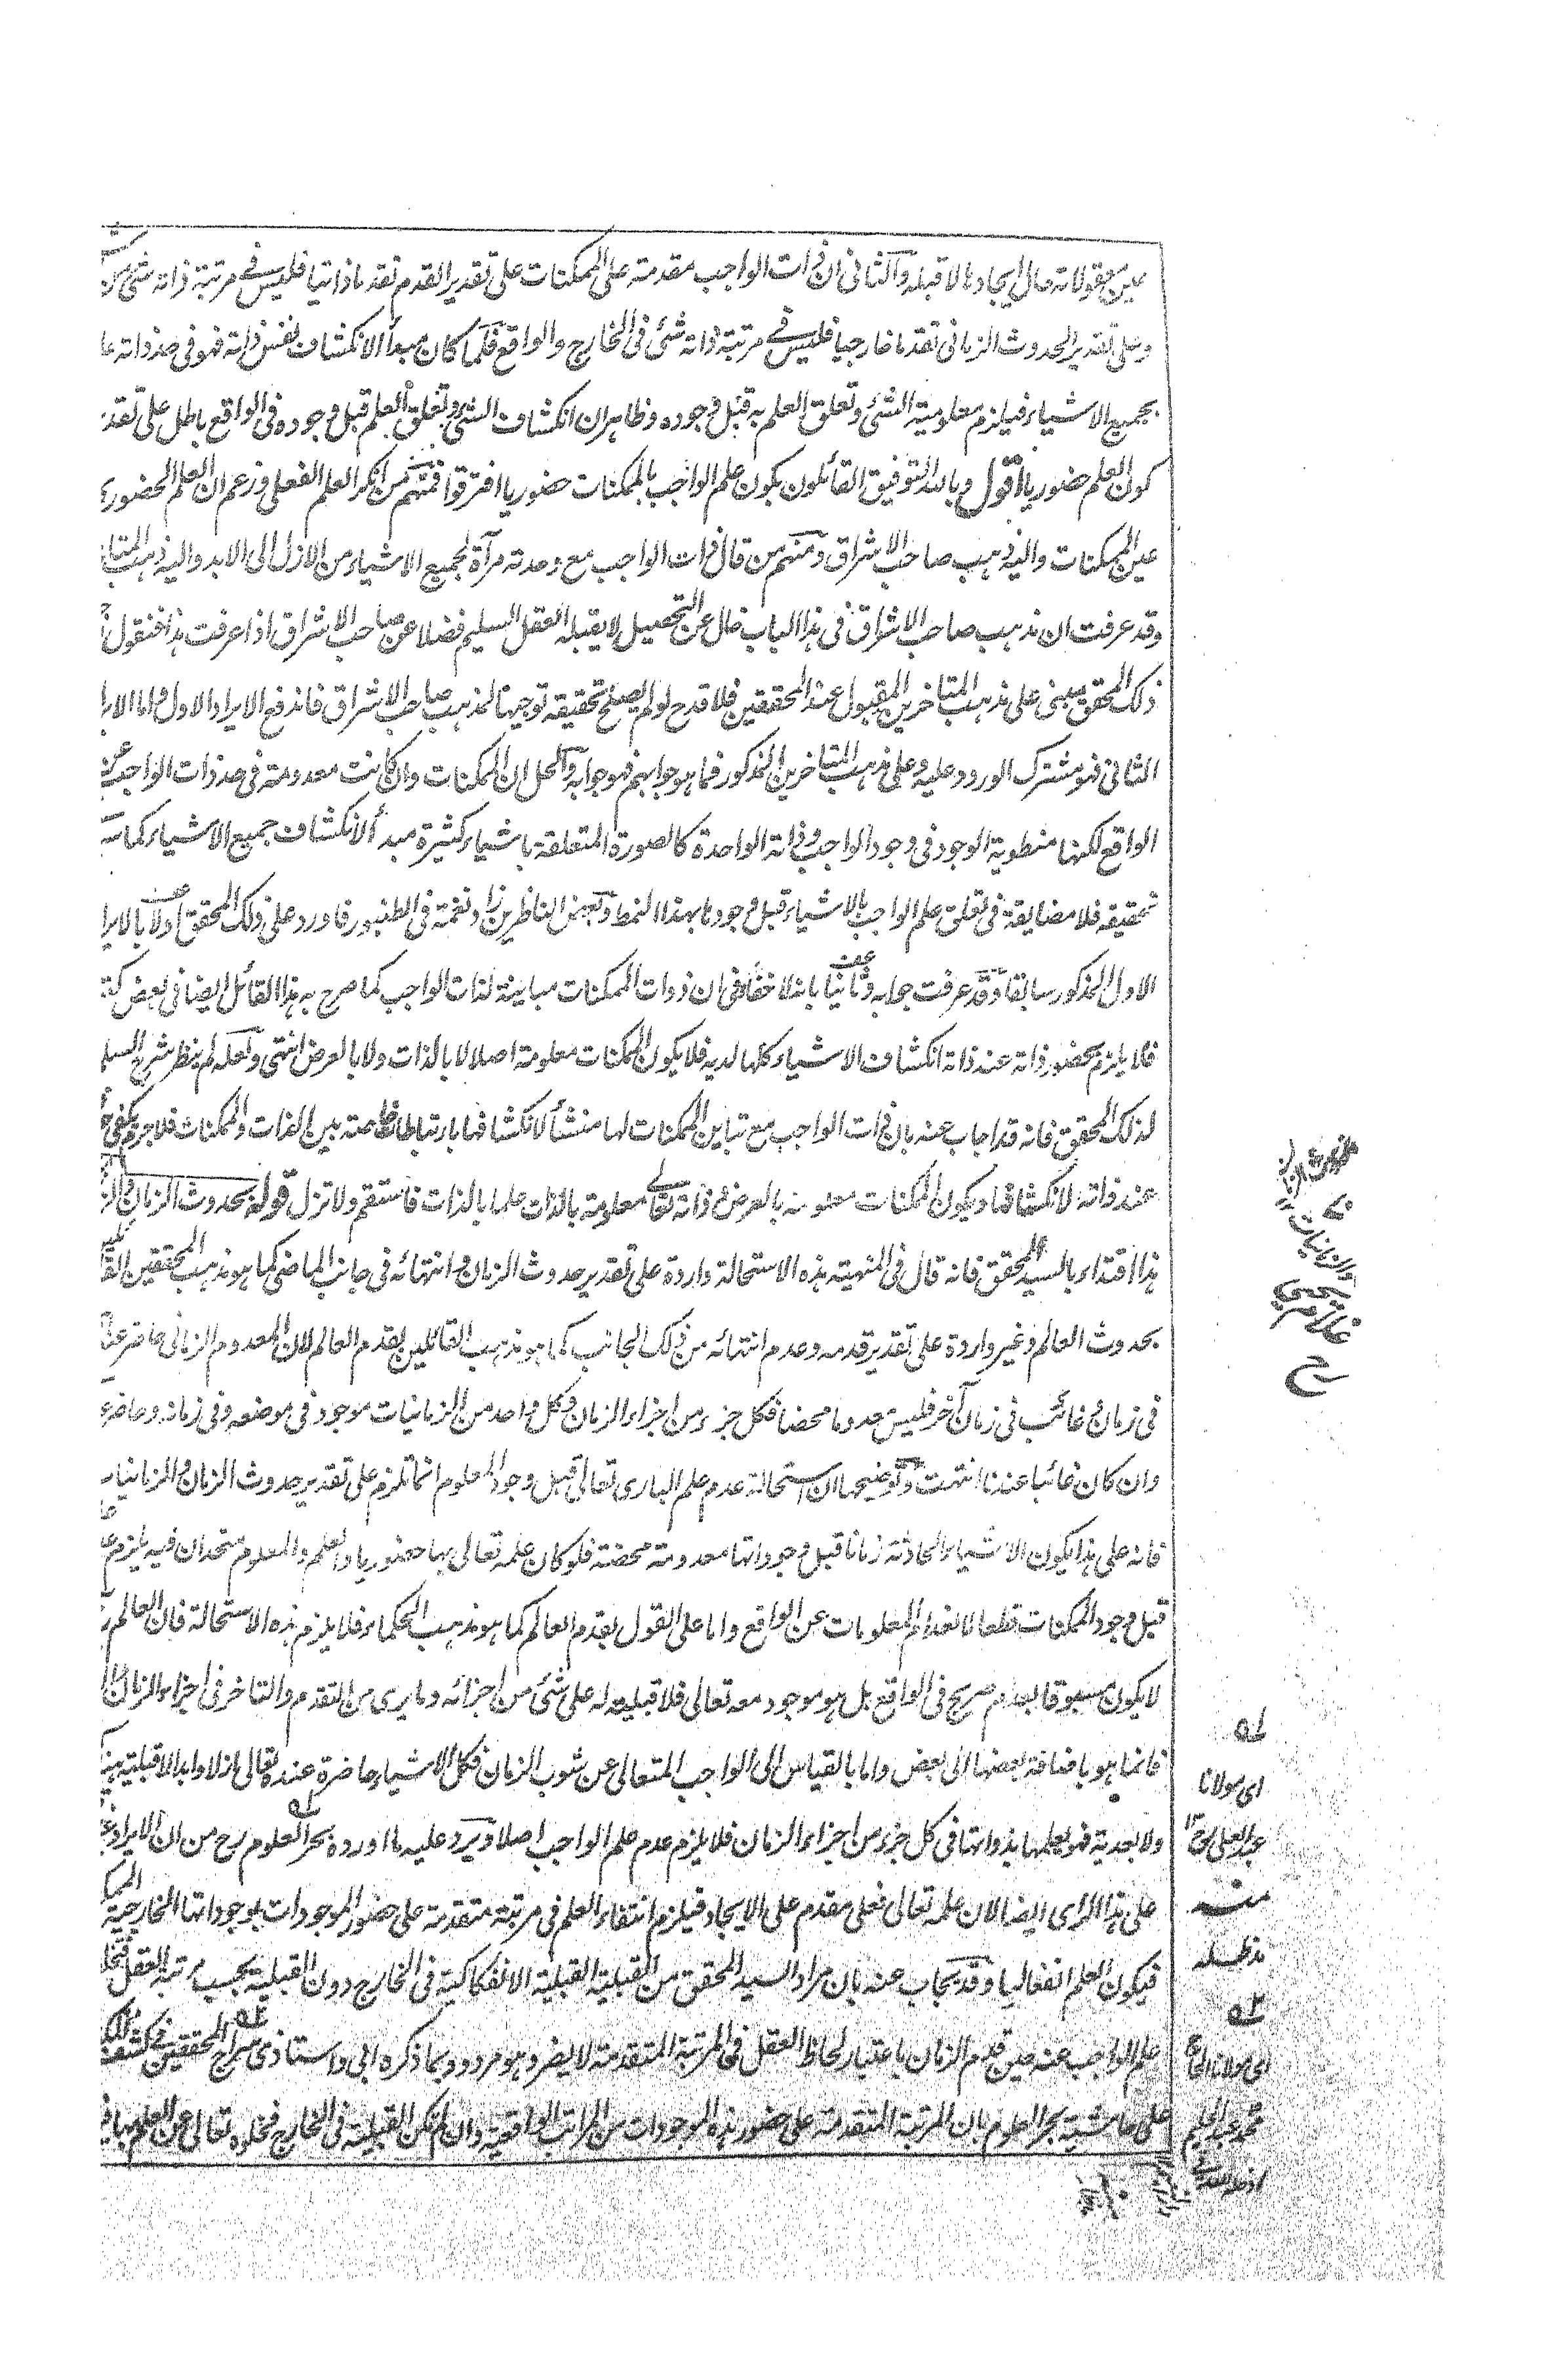 عين معقولاته حال ايجادها لا قبله والثانى ان ذات الواجب مقدمة على الممكنات على تقدير القدم تقدما ذاتيا فليس فى مرتبة ذاته شئ من
وعلى تقدير الحدوث الزمانى تقدما خارجيا فليس فى مرتبة ذاته شئ فى الخارج والواقع فلما كان مبدأ الانكشاف نفس ذاته فهو فى حد ذاته عا
بجميع الاشياء فيلزم معلومية الشئ وتعلق العلم به قبل وجوده وظاهر ان انكشاف الشئ وتعلق العلم قبل وجوده فى الواقع باطل على تقد
كون العلم حضوريا اقول وبالله التوفيق القائلون بكون علم الواجب بالممكنات حضوريا افترقوا فمنهم من انكر العلم الفعلى وزعم ان العلم الحضورى
عين الممكنات واليه ذهب صاحب الاشراق ومنهم من قال ذات الواجب مع وحدته مرآة لجميع الاشياء من الازل الى الابد واليه ذهب المتا
وقد عرفت ان مذهب صاحب الاشراق فى هذا الباب خال عن التحصيل لا يقبله العقل السليم فضلا عن صاحب الاشراق اذا عرفت هذا فنقول
ذلك المحقق مبنى على مذهب المتاخرين المقبول عند المحققين فلا قدح لو لم يصلح تحقيقه توجيها لمذهب صاحب الاشراق فاندفع الايراد الاول واما الايرا
الثانى فهو مشترك الورود عليه وعلى مذهب المتاخرين المذكور فما هو جوابهم فهو جوابه والحل ان الممكنات وان كانت معدومة فى حد ذات الواجب عن
الواقع لكنها منطوية الوجود فى وجود الواجب وذاته الواحدة كالصورة المتعلقة باشياء كثيرة مبدأ لانكشاف جميع الاشياء كما
تحقيقه فلا مضايقة فى تعلق علم الواجب بالاشياء قبل وجودها بهذا النمط وبعض الناظرين زاد نغمة فى الطنبور فاورد على ذلك المحقق اولا بالايرا
الاول المذكور سابقا وقد عرفت جوابه وثانيا بانه لا خفاء فى ان ذوات الممكنات مباينة لذات الواجب كما صرح به هذا القائل ايضا فى بعض كت
فلا يلزم بحضور ذاته عند ذاته انكشاف الاشياء كلها لديه فلا يكون الممكنات معلومة اصلا لا بالذات ولا بالعرض انتهى ولعله لم ينظر شرح السلم
لذلك المحقق فانه قد اجاب عنه بان ذات الواجب مع تباين الممكنات لها منشأ لانكشافها بارتباطات خاصة بين الذات والممكنات فلا جرم يكفى
عند ذاته لانكشافها ويكون الممكنات معلومة بالعرض وذاته تعالى معلومة بالذات علما بالذات فاستقم ولا تزل قوله بحدوث الزمان وال
هذا اقتداء بالسيد المحقق فانه قال فى المنهية هذه الاستحالة واردة على تقدير حدوث الزمان وانتهائه فى جانب الماضى كما هو مذهب المحققين القائلين
بحدوث العالم وغير واردة على تقدير قدمه وعدم انتهائه من ذلك الجانب كما هو مذهب القائلين بقدم العالم لان المعدوم الزمانى حاضر عند
فى زمان وغائب فى زمان آخر فليس معدوما محضا فكل جزء من اجزاء الزمان وكل واحد من الزمانيات موجود فى موضعه وفى زمانه وحاضر
وان كان غائبا عندنا انتهت وتوضيحها ان استحالة عدم علم البارى تعالى قبل وجود المعلوم انما تلزم على تقدير حدوث الزمان والزمانيات
فانه على هذا يكون الاشياء الحادثة زمانا قبل وجوداتها معدومة محضة فلو كان علمه تعالى بها حضوريا والعلم والمعلوم متحدان فيه يلزم
قبل وجود الممكنات قطعا لانعدام المعلومات عن الواقع واما على القول بقدم العالم كما هو مذهب الحكماء فلا يلزم هذه الاستحالة فان العالم
لا يكون مسبوقا بعدم صريح فى الواقع بل هو موجود معه تعالى فلا قبلية له على شئ من اجزائه وما يرى من التقدم والتاخر فى اجزاء الزمان
فانما هو باضافة بعضها الى بعض واما بالقياس الى الواجب المتعالى عن شوب الزمان فكل الاشياء حاضرة عنده تعالى ازلا وابدا لا قبلية
ولا بعدية فهو يعلمها بذواتها فى كل جزء من اجزاء الزمان فلا يلزم عدم علم الواجب اصلا ويرد عليه ما اورده بحر العلوم رح من ان الايراد
على هذا الراى ايضا لان علمه تعالى فعلى مقدم على الايجاد فيلزم انتفاء العلم فى مرتبة متقدمة على حضور الموجودات بوجوداتها الخارجية
فيكون العلم انفعاليا وقد يجاب عنه بان مراد السيد المحقق من القبلية القبلية الانفكاكية فى الخارج دون القبلية بحسب مرتبة العقل
علم الواجب عنه حين قدم الزمان باعتبار لحاظ العقل فى المرتبة المتقدمة لا يضر وهو مردود بما ذكره ابى واستاذى سراج المحققين فى كشف
على حاشية بحر العلوم بان المرتبة المتقدمة على حضور هذه الموجودات من المراتب الواقعية وان لم تكن القبلية فى الخارج فخلوه تعالى عن العلم بها
والزمانيات
اى مولانا
عبد العلى رح
منه
مد ظله
اى مولانا
محمد عبد الحليم